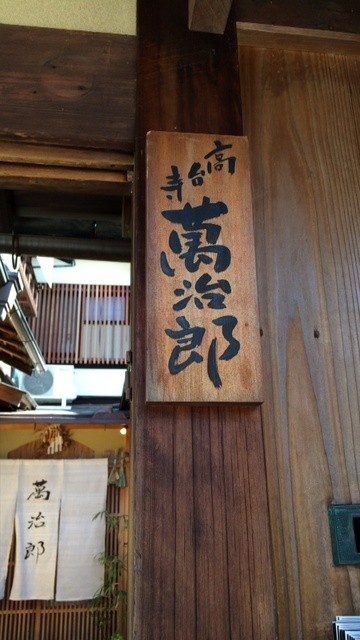 高台寺
萬治郎
萬治郎